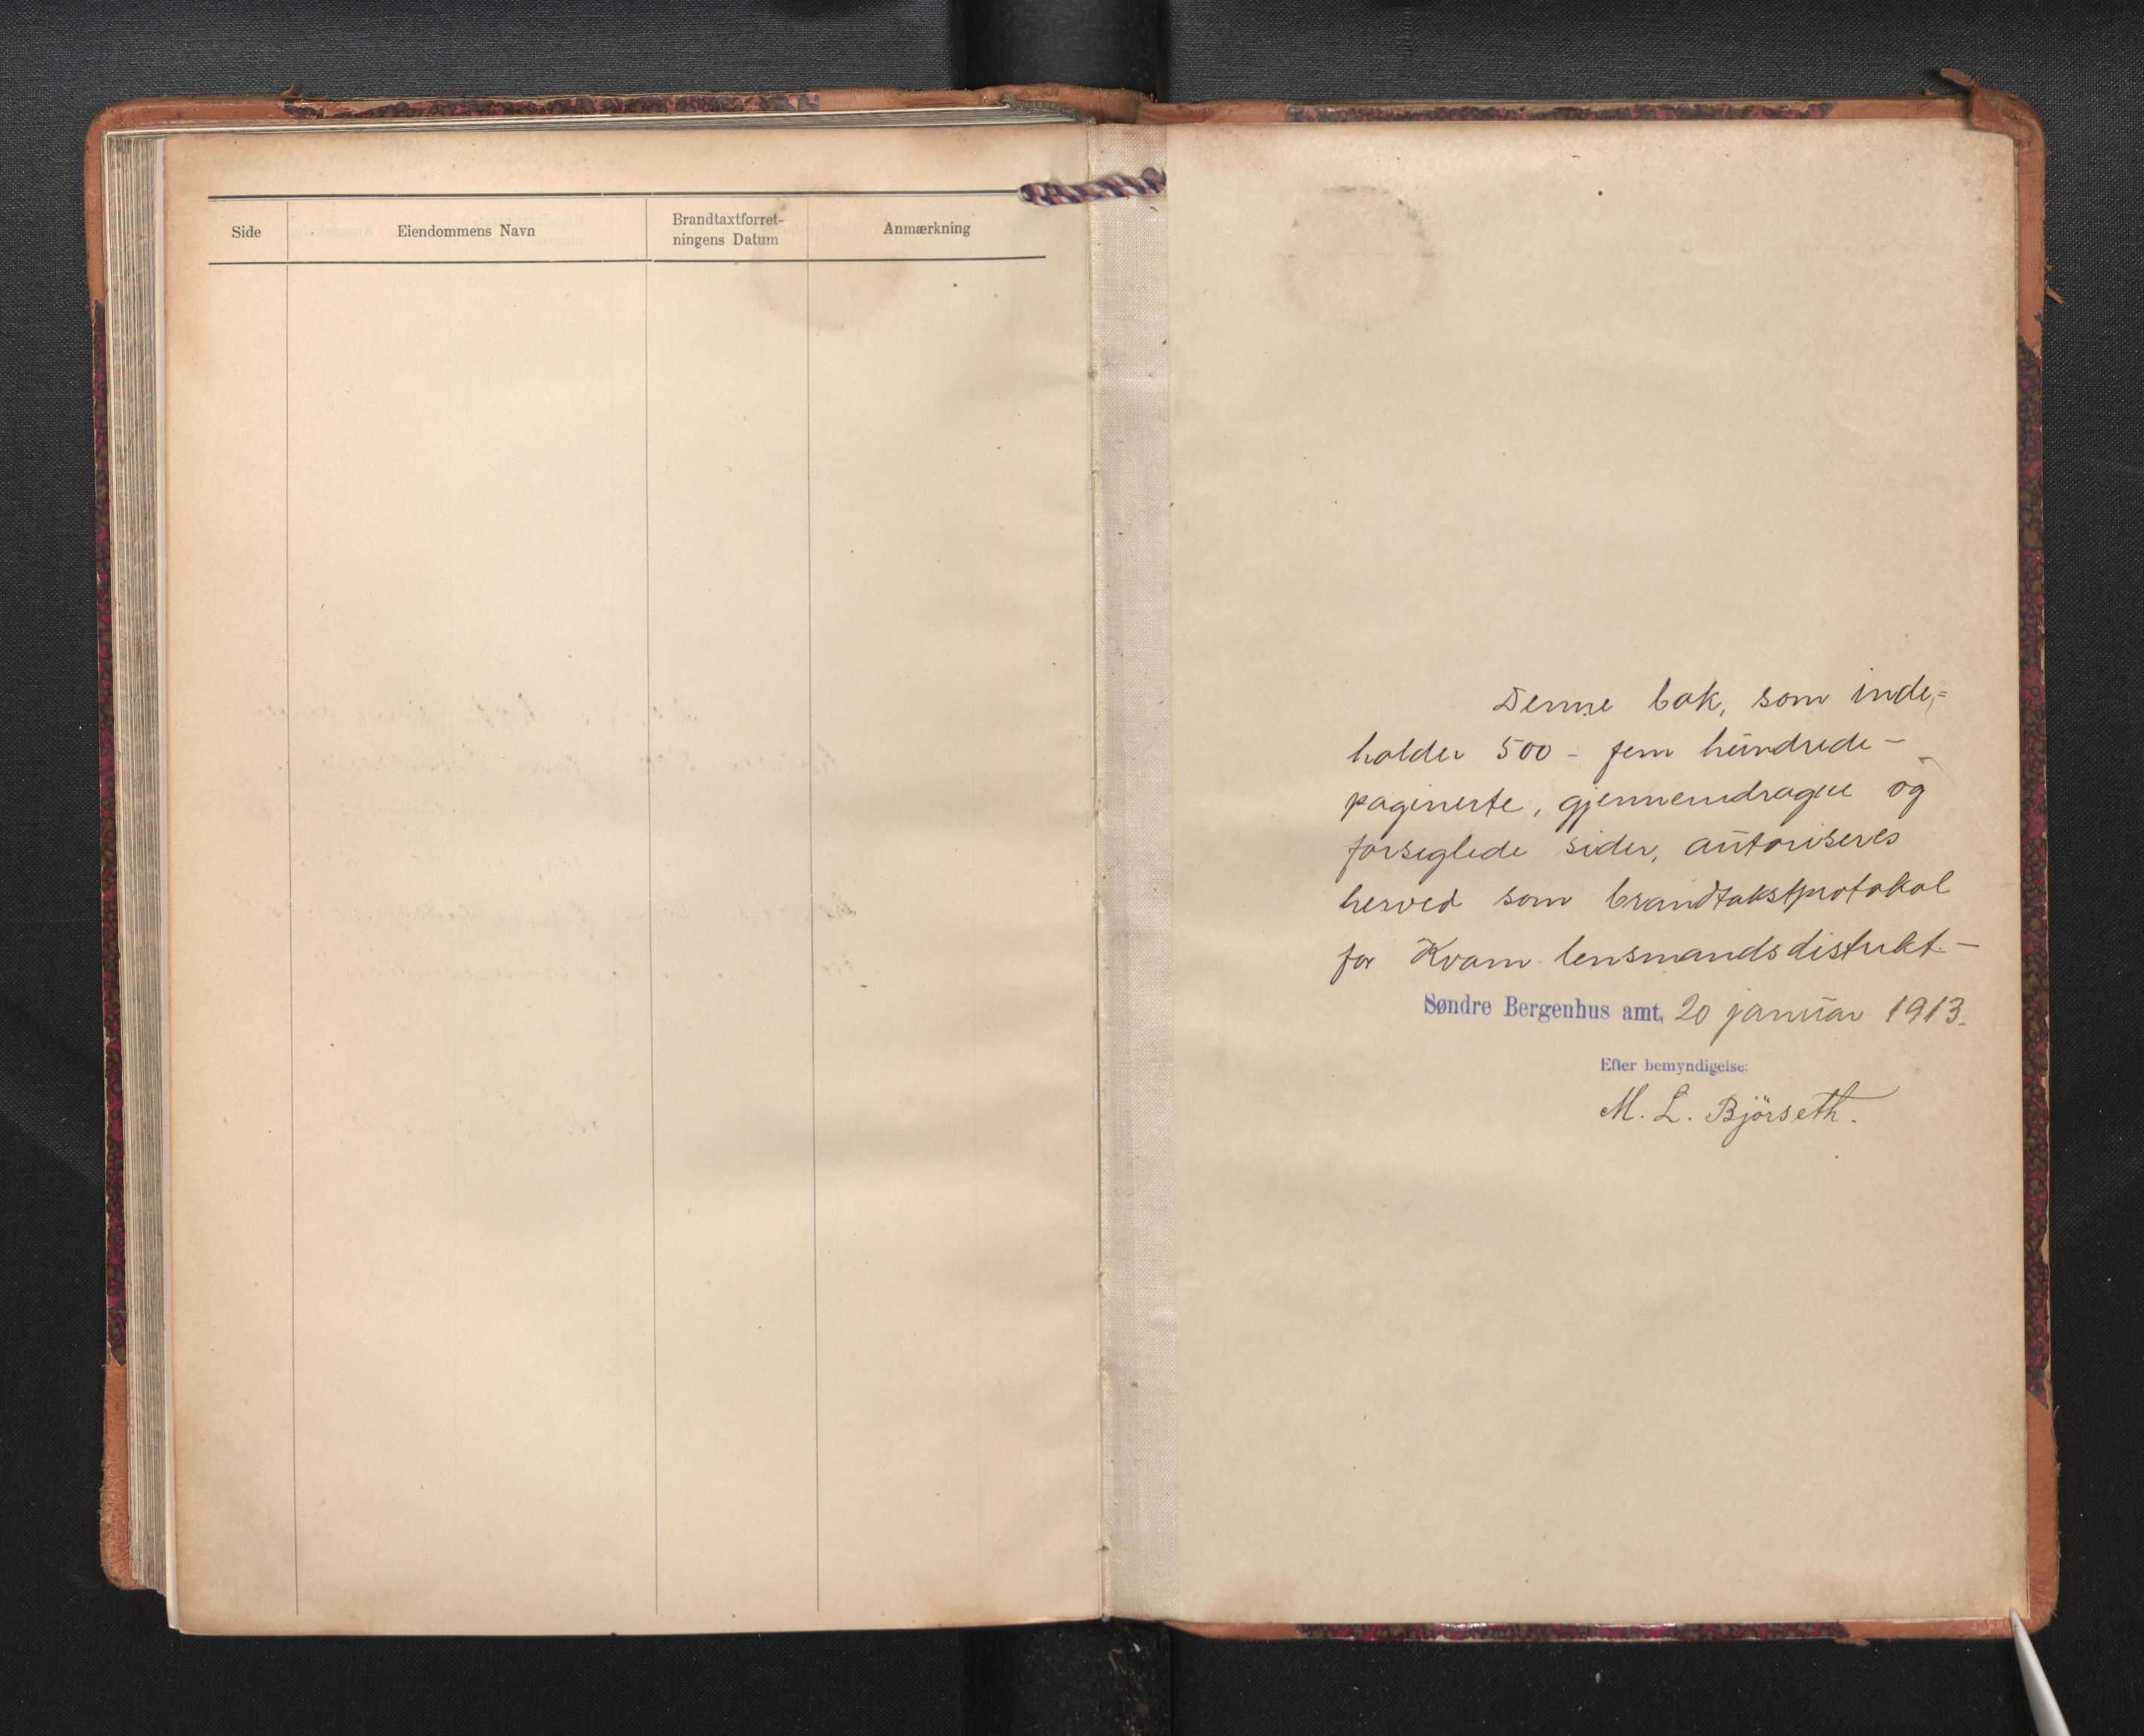 Side
Eiendommens Navn
Brandtaxtforret-
ningens Datum
Anmærkning
Denne bok, som inde-
holder 500 - fem hundrede -
paginerte, gjennemdragne og
forseglede sider, autoriseres
herved som brandtakstprotokol
for Kvam lensmandsdistrikt. -
Søndre Bergenhus amt, 20 januar 1913.
Efter bemyndigelse:
M. L. Björseth.